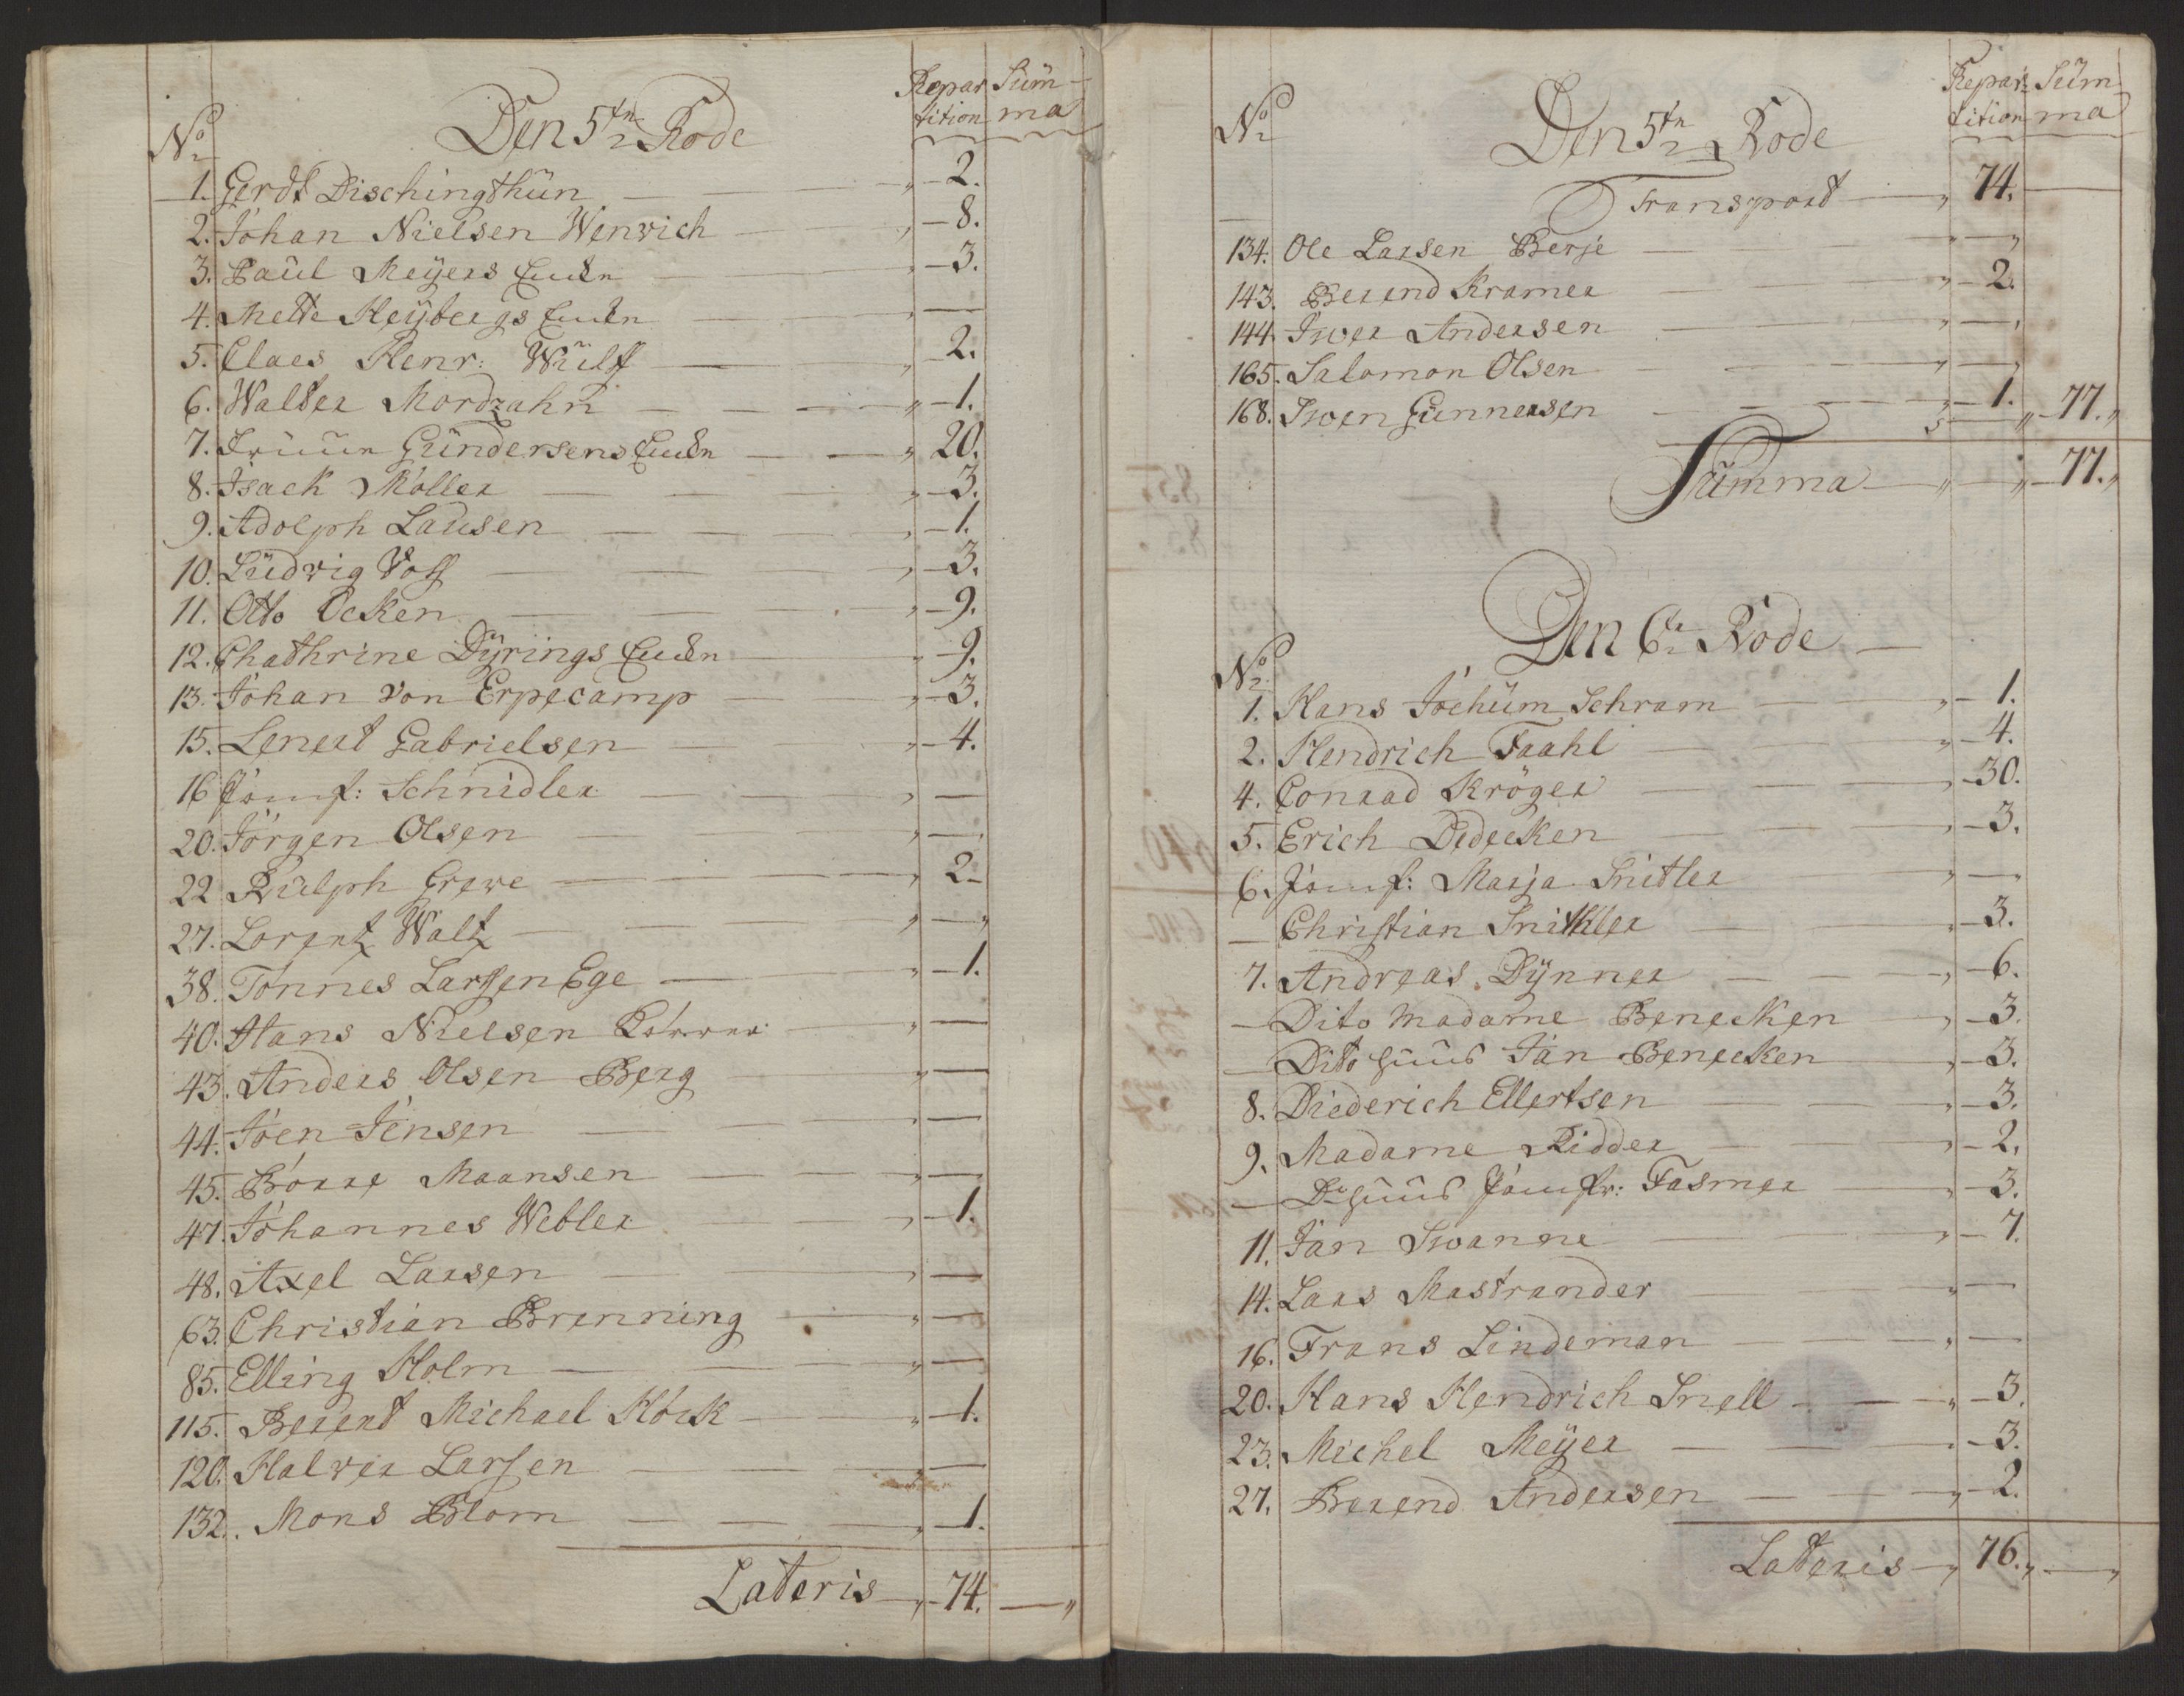 Repar Sum-
No Den 5tn Rode tition ma
1. Gerdt Dischingthun — 2.
2. Johan Nielsen Wenrich — 8.
3. Paul Meyers Encken — 3.
4. Mette Heybergs Encken —
5. Claes Henr: Wulff — 2.
6. Walter Mordzahn — 1.
7. Gundersens — 20.
8. Isack Møller — 3.
9. Adolph Lausen — 1.
10. Ludvig Voss — 3.
11. Otto Ocken — 9.
12. Chathrine Dyrings Encken — 9.
13. Johan von Erpecamp — 3.
15. Lenert Gabrielsen — 4.
16 Jomf: Schnidler —
20. Jörgen Olsen —
22 Rulph Grewe — 2
27. Lorentz Waltz —
38. Tönnes Larssen Ege — 1.
40. Hans Nielsen —
43. Anders Olsen Berg —
44. Joen Jensen —
45. Börre Maansen —
47. Johannes Webler — 1.
48. Axel Larsen —
63. Christian Brenning —
85. Elling Holm —
115. Berent Michael Höck — 1.
120. Halver Larssen —
132. Mons Blom — 1.
Lateris — 74. —
Repar Sum
No Den 5tn Rode tition ma
Transport — 74. —
134. Ole Larsen Berje —
143. Berend Kramer — 2.
144. Iwer Andersen —
165. Salomon Olsen —
168. Swen Gunnersen — 1. — 77.
Summa — 77.
Den 6te Rode
No
1. Hans Jochum Schram — 1.
2. Hendrich Faahl — 4.
4. Conrad Kröger — 30.
5. Erich Dedecken — 3.
6. Jomf: Marja Snitler —
— Christian Snitler — 3.
7. Andreas Dynner — 6.
— Dito Madame Benecken — 3.
— Dito huus Jan Benecken — 3.
8. Diederich Ellertsen — 3.
9. Madame Ridder — 2.
— Do huus Jomfr: Fasmer — 3.
11. Jan Swanne — 7.
14. Lars Mastrander —
16. Frans Lindeman —
20. Hans Hendrich Snell — 3.
23. Michel Meyer — 3.
27. Berend Andersen — 2.
Lateris — 76. —